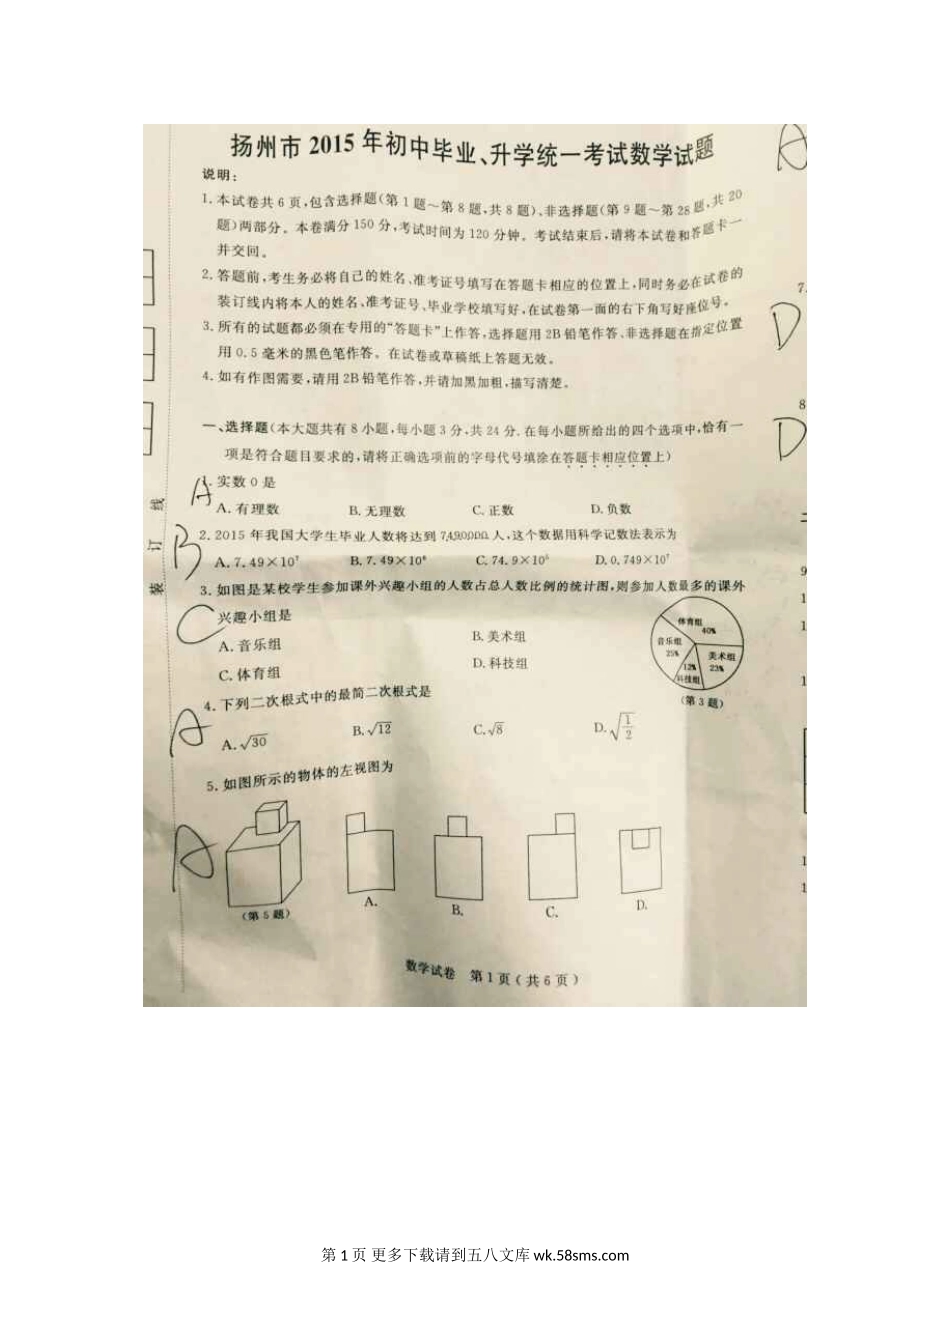 扬州市 2015 年初中毕业、升学统一考试数学试题
说明：
1. 本试卷共 6 页，包含选择题(第 1 题～第 8 题，共 8 题)、非选择题(第 9 题～第 28 题，共 20
题)两部分。本卷满分 150 分，考试时间为 120 分钟。考试结束后，请将本试卷和答题卡一
并交回。
2. 答题前，考生务必将自己的姓名、准考证号填写在答题卡相应的位置上，同时务必在试卷的
装订线内将本人的姓名、准考证号、毕业学校填写好，在试卷第一面的右下角写好座位号。
3. 所有的试题都必须在专用的“答题卡”上作答，选择题用 2B 铅笔作答、非选择题在指定位置
用 0.5 毫米的黑色笔作答。在试卷或草稿纸上答题无效。
4. 如有作图需要，请用 2B 铅笔作答，并请加黑加粗，描写清楚。
一、选择题(本大题共有 8 小题，每小题 3 分，共 24 分. 在每小题所给出的四个选项中，恰有一
项是符合题目要求的，请将正确选项前的字母代号填涂在答题卡相应位置上)
A
实数 0 是
A. 有理数 B. 无理数 C. 正数 D. 负数
B
2. 2015 年我国大学生毕业人数将达到 7490000 人，这个数据用科学记数法表示为
A. 7.49×10⁷ B. 7.49×10⁶ C. 74.9×10⁵ D. 0.749×10⁷
3. 如图是某校学生参加课外兴趣小组的人数占总人数比例的统计图，则参加人数最多的课外
C
兴趣小组是
A. 音乐组 B. 美术组
C. 体育组 D. 科技组
体育组
40%
音乐组
25%
美术组
23%
12%
科技组
(第 3 题)
4. 下列二次根式中的最简二次根式是
A
A. √30 B. √12 C. √8 D. √(1/2)
5. 如图所示的物体的左视图为
A
(第 5 题) A. B. C. D.
数学试卷 第 1 页(共 6 页)
线
订
装
A
7.
D
8
D
9
1
1
1
1
1
第 1 页 更多下载请到五八文库 wk.58sms.com